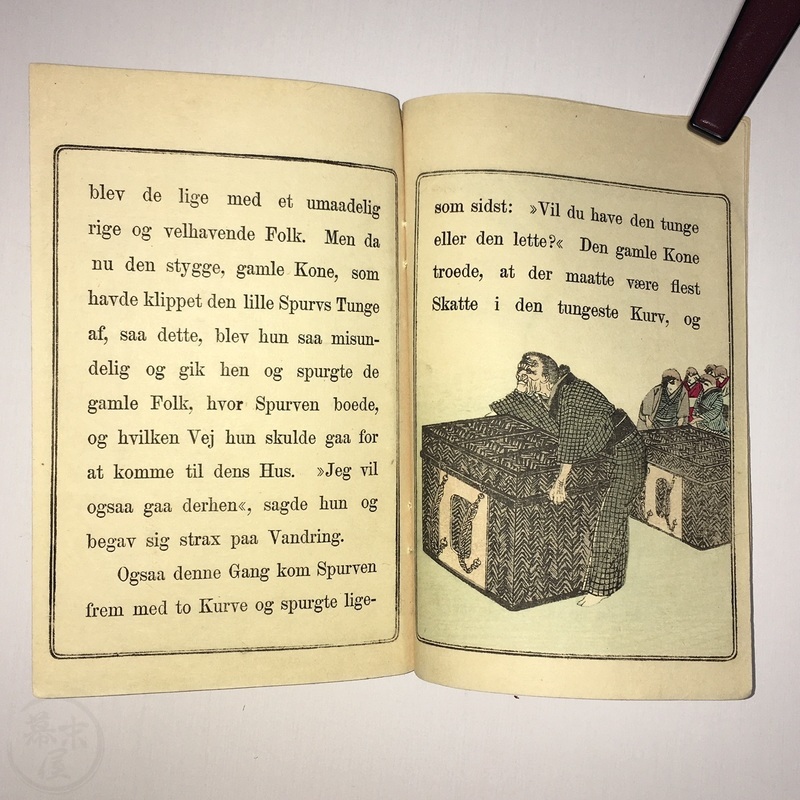 blev de lige med et umaadelig
rige og velhavende Folk. Men da
nu den stygge, gamle Kone, som
havde klippet den lille Spurvs Tunge
af, saa dette, blev hun saa misun-
delig og gik hen og spurgte de
gamle Folk, hvor Spurven boede,
og hvilken Vej hun skulde gaa for
at komme til dens Hus. »Jeg vil
ogsaa gaa derhen«, sagde hun og
begav sig strax paa Vandring.
Ogsaa denne Gang kom Spurven
frem med to Kurve og spurgte lige-
som sidst: »Vil du have den tunge
eller den lette?« Den gamle Kone
troede, at der maatte være flest
Skatte i den tungeste Kurv, og
幕末屋